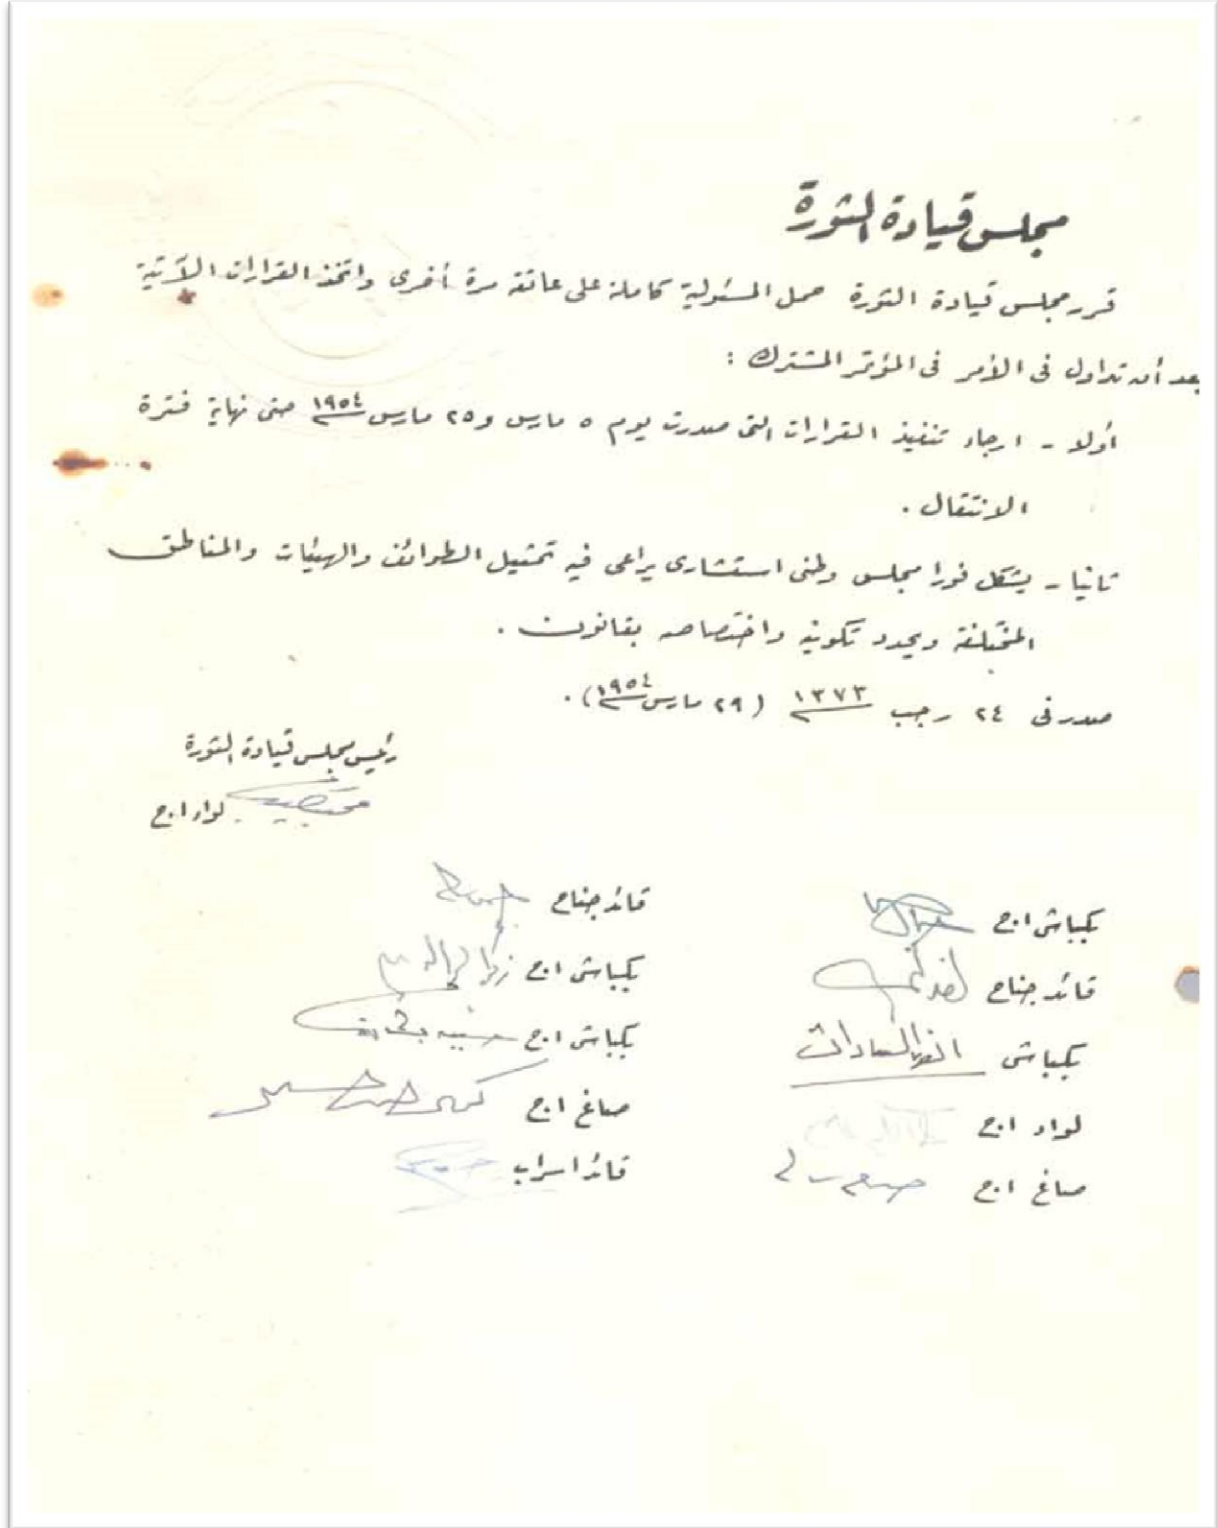 مجلس قيادة الثورة
قرر مجلس قيادة الثورة حمل المسئولية كاملة على عاتقه مرة أخرى واتخذ القرارات الآتية
بعد أن تداول فى الأمر فى المؤتمر المشترك :
أولا - ارجاء تنفيذ القرارات التى صدرت يوم ٥ مارس و ٢٥ مارس ١٩٥٤ حتى نهاية فترة
الانتقال .
ثانيا - يشكل فورا مجلس وطنى استشارى يراعى فيه تمثيل الطوائف والهيئات والمناطق
المختلفة ويحدد تكوينه واختصاصه بقانون .
صدر فى ٢٤ رجب ١٣٧٣ ( ٢٩ مارس ١٩٥٤ ) .
رئيس مجلس قيادة الثورة
لواء ا.ح
بكباشى ا.ح
قائد جناح
قائد جناح
بكباشى ا.ح زكريا
بكباشى أنور السادات
بكباشى ا.ح حسين
لواء ا.ح
صاغ ا.ح كمال الدين حسين
صاغ ا.ح
قائد اسراب